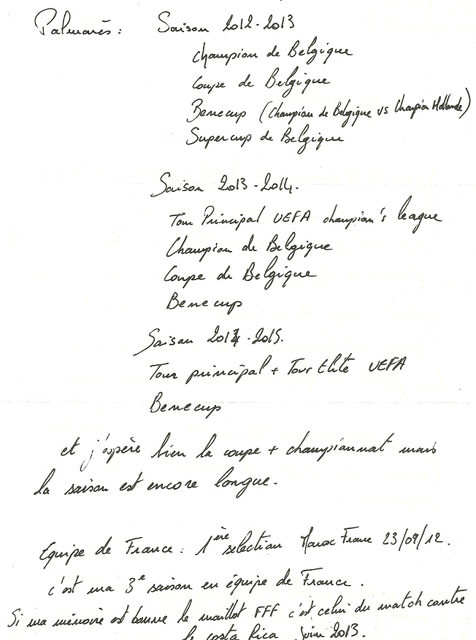 Palmarès : Saison 2012-2013
Champion de Belgique
Coupe de Belgique
Benecup (Champion de Belgique vs Champion Hollande)
Supercup de Belgique
Saison 2013-2014.
Tour Principal UEFA champion's league
Champion de Belgique
Coupe de Belgique
Benecup
Saison 2014-2015.
Tour principal + Tour Elite UEFA
Benecup
et j'espère bien la coupe + championnat mais
la saison est encore longue.
Equipe de France : 1ère selection Maroc France 23/09/12.
c'est ma 3e saison en équipe de France.
Si ma mémoire est bonne le maillot FFF c'est celui du match contre
le costa Rica Juin 2013.